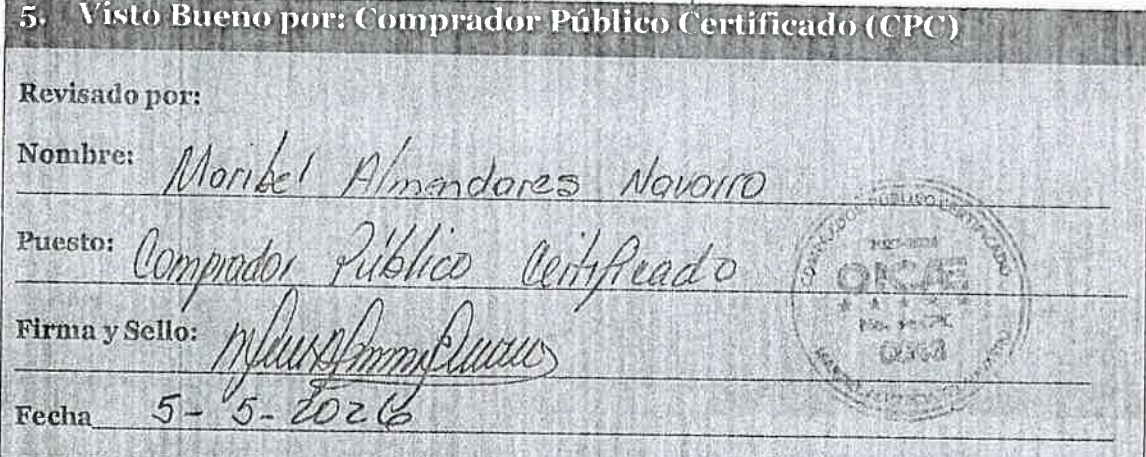 5. Visto Bueno por: Comprador Público Certificado (CPC)
Revisado por:
Nombre: Maribel Almendares Navarro
Puesto: Comprador Público Certificado
Firma y Sello:
COMPRADOR PÚBLICO CERTIFICADO
ONCAE
Fecha 5-5-2026